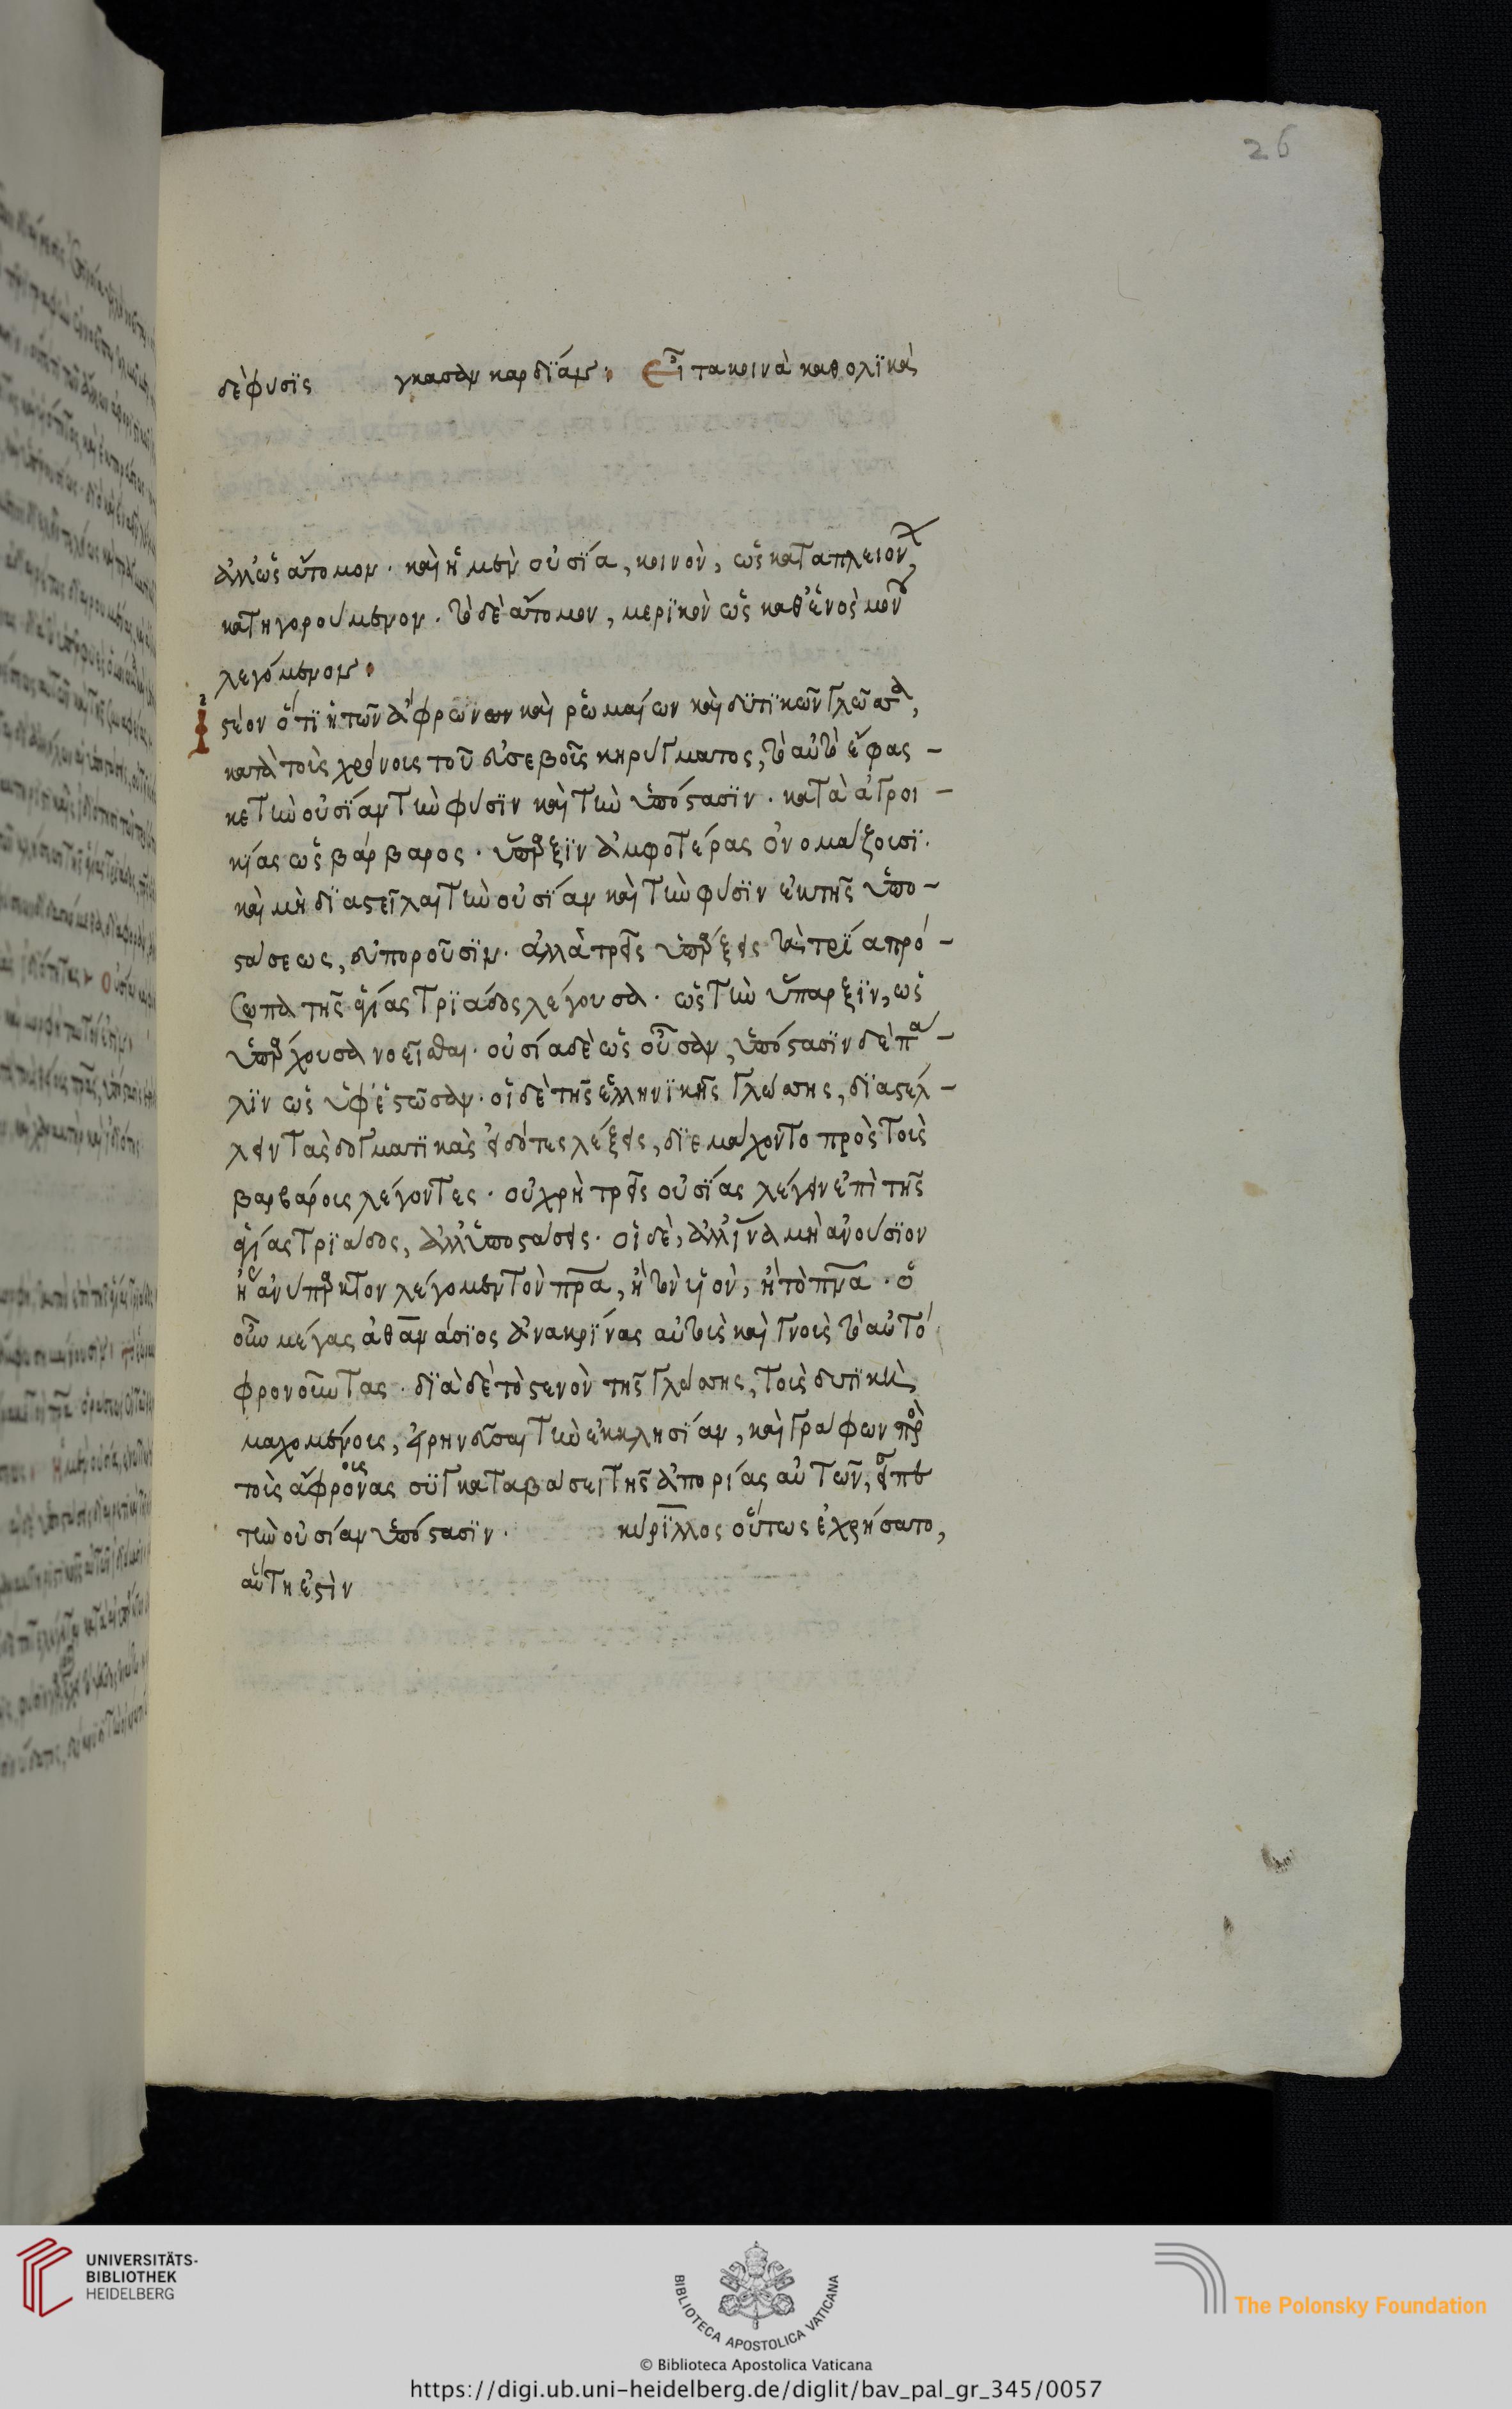 26
δὲ φύσϊς γκασαν καρδίαν· Εἶ τα κοινὰ καθολϊκὰ
ἀλλ' ὡς ἄτομον. καὶ ἡ μὲν οὐσία, κοινὸν, ὡς κατα πλειόνων
κατηγορούμενον. τὸ δὲ ἄτομον, μερϊκὸν ὡς καθ' ἑνὸς μόνου
λεγόμενον·
Ἰστέον ὅτϊ ἡ τῶν ἄφρωνων καὶ ῥωμαίων καὶ δϋτϊκῶν γλῶσσα,
κατὰ τοὺς χρόνους τοῦ εὐσεβοῦς κηρύγματος, τὸ αὐτὸ ἔφας-
κε τὴν οὐσίαν τὴν φύσϊν καὶ τὴν ὑπόστασϊν. κατὰ ἀγροι-
κίας ὡς βάρβαρος. ὕπαρξϊν ἀμφοτέρας ὀνομάζουσϊ.
καὶ μὴ δϊαστεῖλαι τὴν οὐσίαν καὶ τὴν φύσϊν ἐκ τῆς ὑπο-
στάσεως, εὐποροῦσϊν. ἀλλὰ τρεῖς ὑπάρξεις τὰ τρία πρό-
σωπα τῆς ἁγίας τρϊάδος λέγουσα. ὡς τὴν ὕπαρξϊν, ὡς
ὑπάρχουσα νοεῖσθαι. οὐσία δὲ ὡς οὖσαν, ὑπόστασϊν δὲ πά-
λϊν ὡς ὑφεστῶσαν. οἱ δὲ τῆς ἑλληνϊκῆς γλώσσης, δϊαστέλ-
λειν τὰς δογματϊκὰς εἰδότες λέξεις, δϊεμάχοντο πρὸς τοὺς
βαρβάρους λέγοντες. οὐ χρὴ τρεῖς οὐσίας λέγειν ἐπὶ τῆς
ἁγίας τρϊάδος, ἀλλ' ὑποστάσεις. οἱ δὲ, ἀλλ' ἵνα μὴ ἀνούσϊον
ἢ ἀνύπαρκτον λέγομεν τὸν πρα, ἢ τὸν υἱὸν, ἢ τὸ πνα. ὁ
οὖν μέγας ἀθανάσϊος ἀνακρίνας αὐτοὺς καὶ γνοὺς τὸ αὐτό
φρονοῦντας. δϊὰ δὲ τὸ στενὸν τῆς γλώσσης, τοὺς δυτϊκοὺς
μαχομένους, εἰρηνεῦσαι τὴν ἐκκλησίαν, καὶ γράφων πρὸς
τοὺς ἄφρονας οις σϋγκαταβάσει τῆς ἀπορίας αὐτῶν, εἶπε
τὴν οὐσίαν ὑπόστασϊν. κύρϊλλος οὕτως ἐχρήσατο,
αὕτη ἐστὶν
UNIVERSITÄTS-
BIBLIOTHEK
HEIDELBERG
BIBLIOTECA APOSTOLICA VATICANA
The Polonsky Foundation
© Biblioteca Apostolica Vaticana
https://digi.ub.uni-heidelberg.de/diglit/bav_pal_gr_345/0057